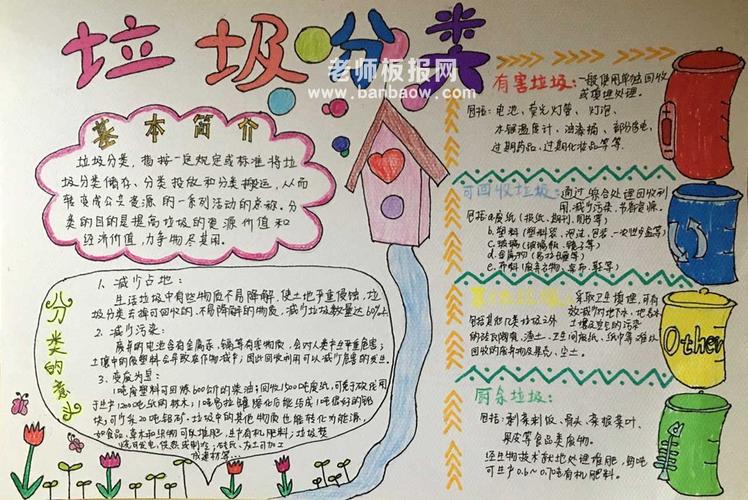 垃圾分类
老师板报网
www.banbaow.com
基本简介
垃圾分类，指按一定规定或标准将垃
圾分类储存、分类投放和分类搬运，从而
转变成公共资源的一系列活动的总称。分
类的目的是提高垃圾的资源价值和
经济价值，力争物尽其用。
分类的意义
1、减少占地：
生活垃圾中有些物质不易降解，使土地严重侵蚀，垃
圾分类去掉可回收的、不易降解的物质，减少垃圾数量达60%
2、减少污染：
废弃的电池含有金属汞、镉等有害物质，会对人类产生严重危害；
土壤中的废塑料会导致农作物减产；因此回收利用可以减少危害的发生。
3、变废为宝：
1吨废塑料可回炼600公斤的柴油；回收1500吨废纸，可免于砍伐用
于生产1200吨纸的林木；
可少采20吨铝矿。垃圾中的其他物质也能转化为资源，
如食品、草木和织物可以堆肥，生产有机肥料；垃圾焚
烧可发电、供热或制冷；砖瓦、灰土可加工
成建材等
有害垃圾：一般使用单独回收
或填埋处理。
包括：电池、荧光灯管、灯泡、
水银温度计、油漆桶、部分家电、
过期药品、过期化妆品等等。
可回收垃圾：通过综合处理回收利
用，减少污染，节省资源。
包括a.废纸（报纸、期刊、图书等）
b.塑料（塑料袋、泡沫、包装、一次性餐盒等）
c.玻璃（玻璃瓶、镜子等）
d.金属物（易拉罐等）
e.布料（废弃衣物、桌布、鞋等）
其他垃圾：采取卫生填埋，可有
效减少对地下水、地表水
土壤及空气的污染
包括其他几类垃圾之外
的砖瓦陶瓷、渣土、卫生间废纸、纸巾等难以
回收的废弃物及果壳、尘土。
Other
厨余垃圾：
包括：剩菜剩饭、骨头、菜根菜叶、
果皮等食品类废物。
经生物技术就地处理堆肥，每吨
可生产0.6~0.7吨有机肥料。